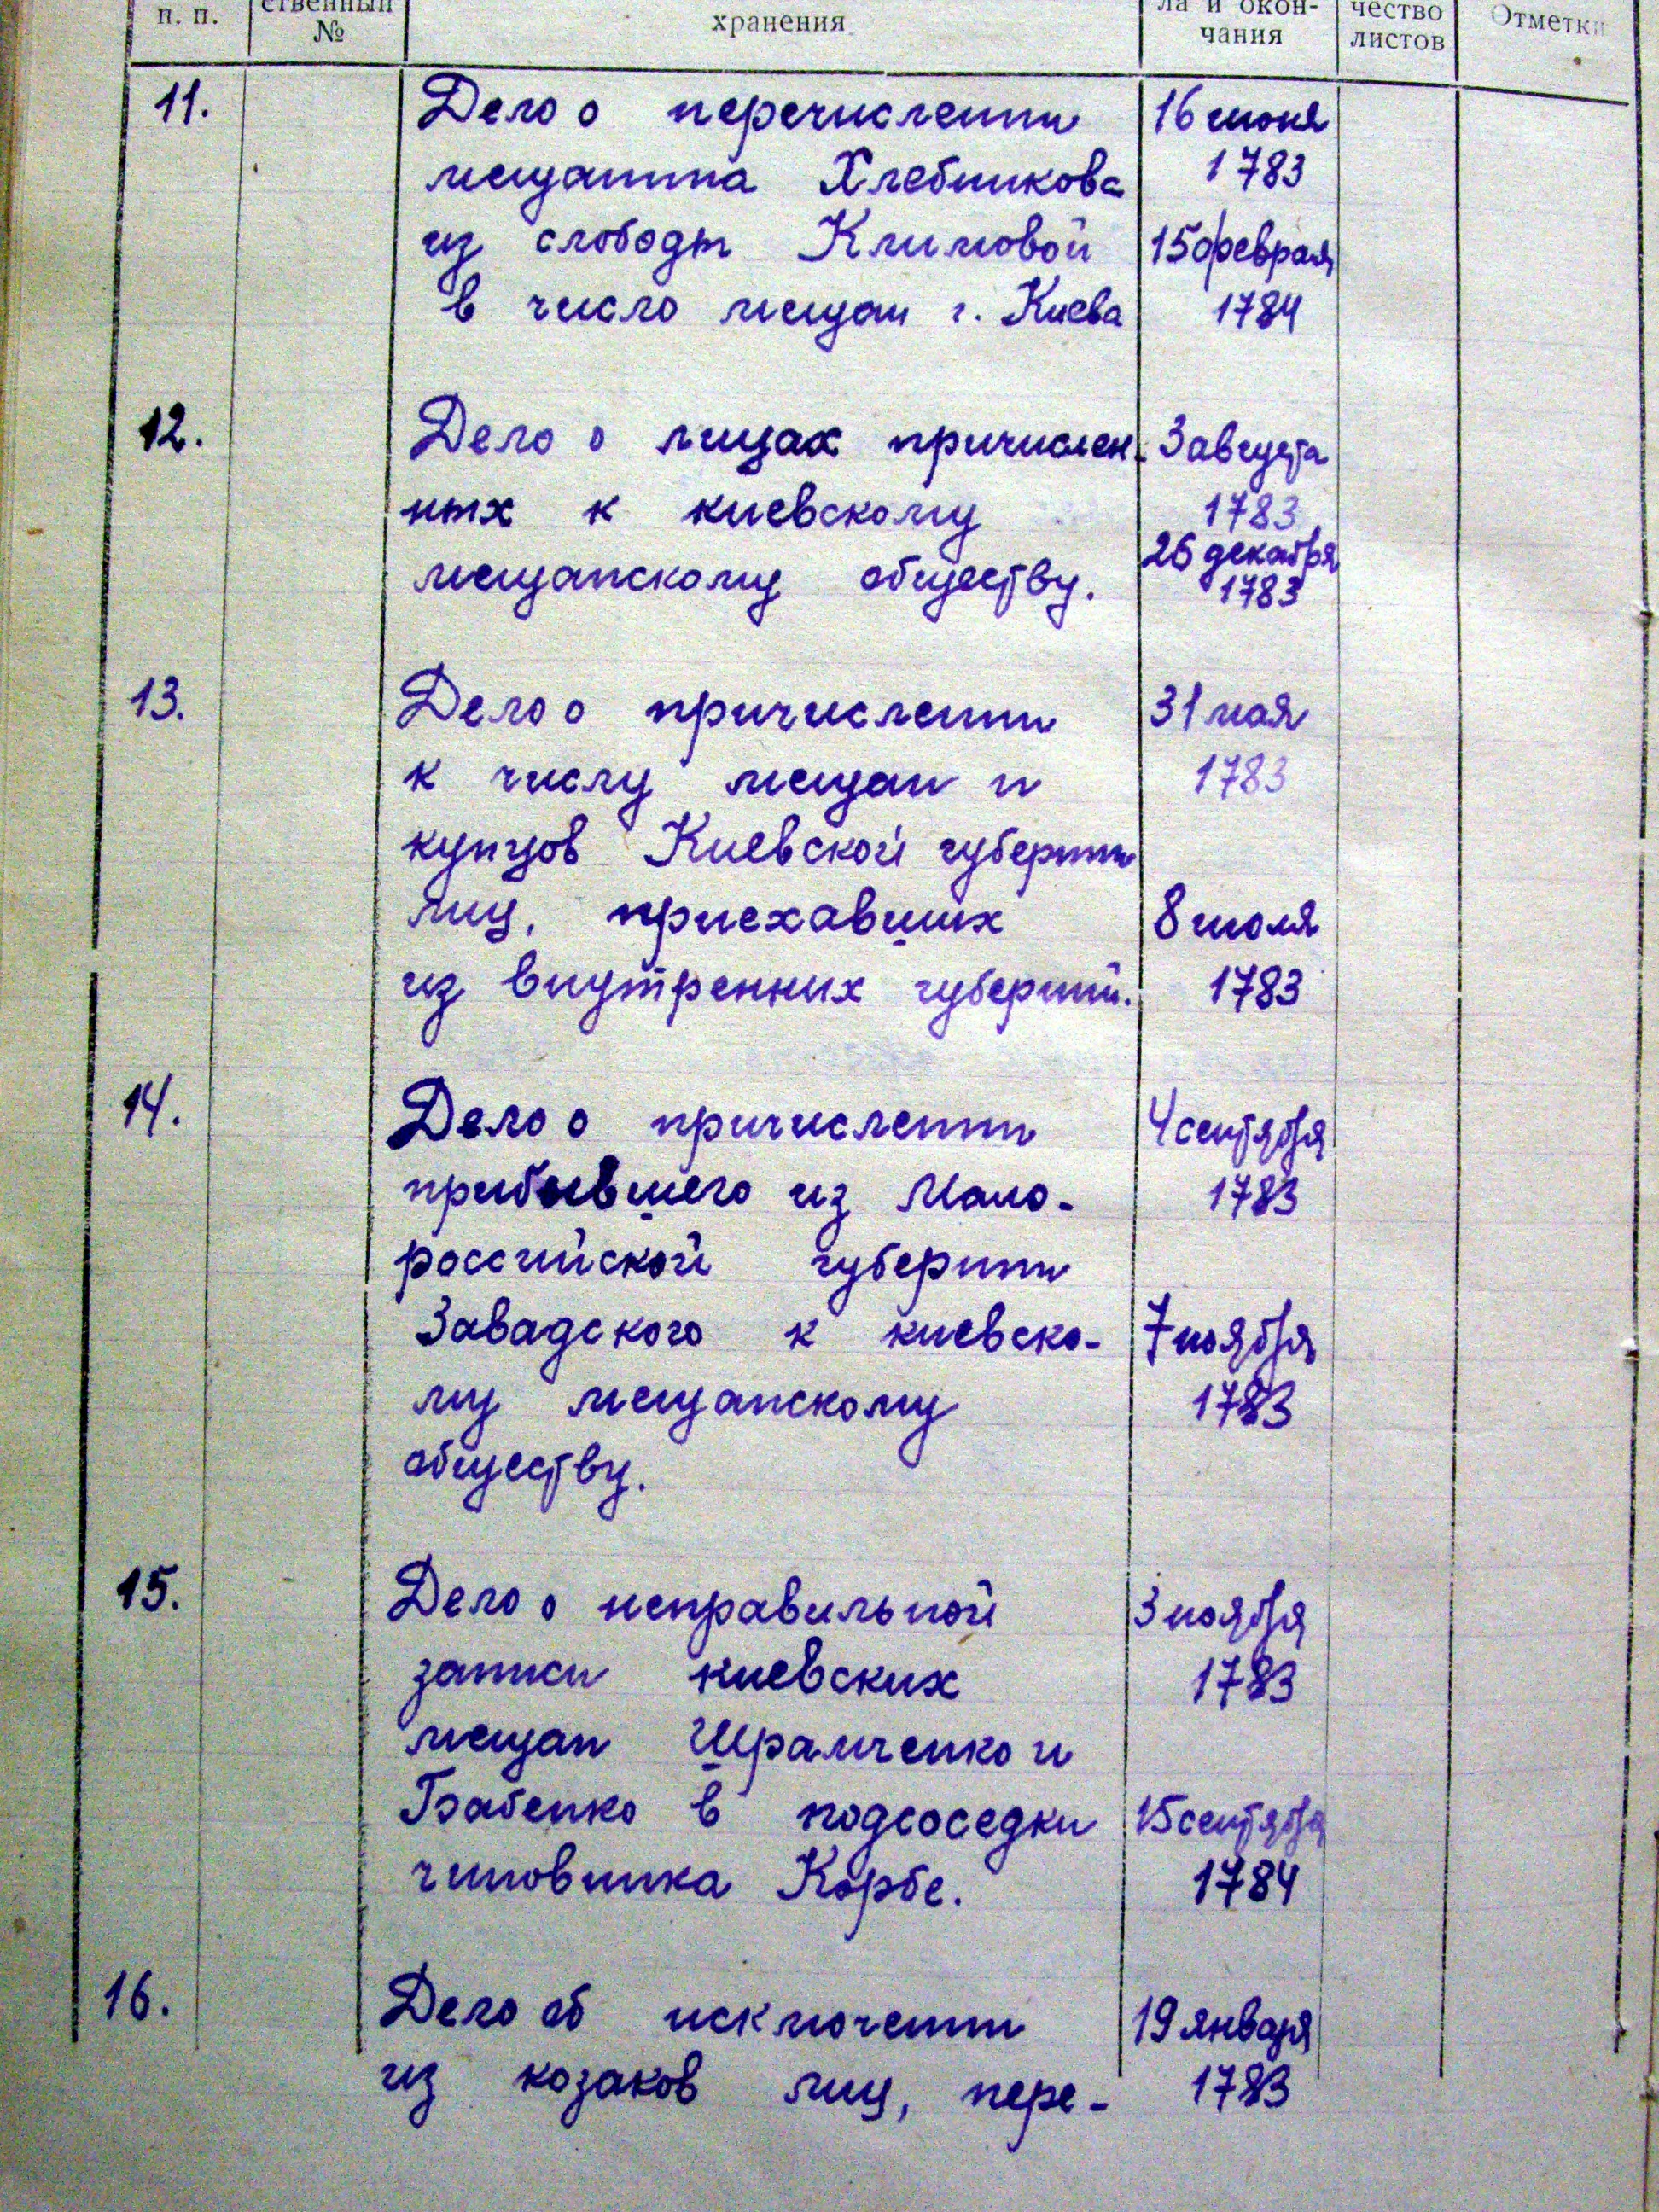 п. п. ственный № хранения ла и окон- чания чество листов Отметки
11. Дело о перечислении 16 июня
мещанина Хлебникова 1783
из слободы Климовой 15 февраля
в число мещан г. Киева 1784
12. Дело о лицах причислен- 3 августа
ных к киевскому 1783
мещанскому обществу. 26 декабря
1783
13. Дело о причислении 31 мая
к числу мещан и 1783
купцов Киевской губернии
лиц, приехавших 8 июля
из внутренних губерний. 1783
14. Дело о причислении 4 сентября
прибывшего из Мало- 1783
российской губернии
Завадского к киевско- 7 ноября
му мещанскому 1783
обществу.
15. Дело о неправильной 3 ноября
записи киевских 1783
мещан Шрамченко и
Бабенко в подсоседки 15 сентября
чиновника Корбе. 1784
16. Дело об исключении 19 января
из козаков лиц, пере- 1783